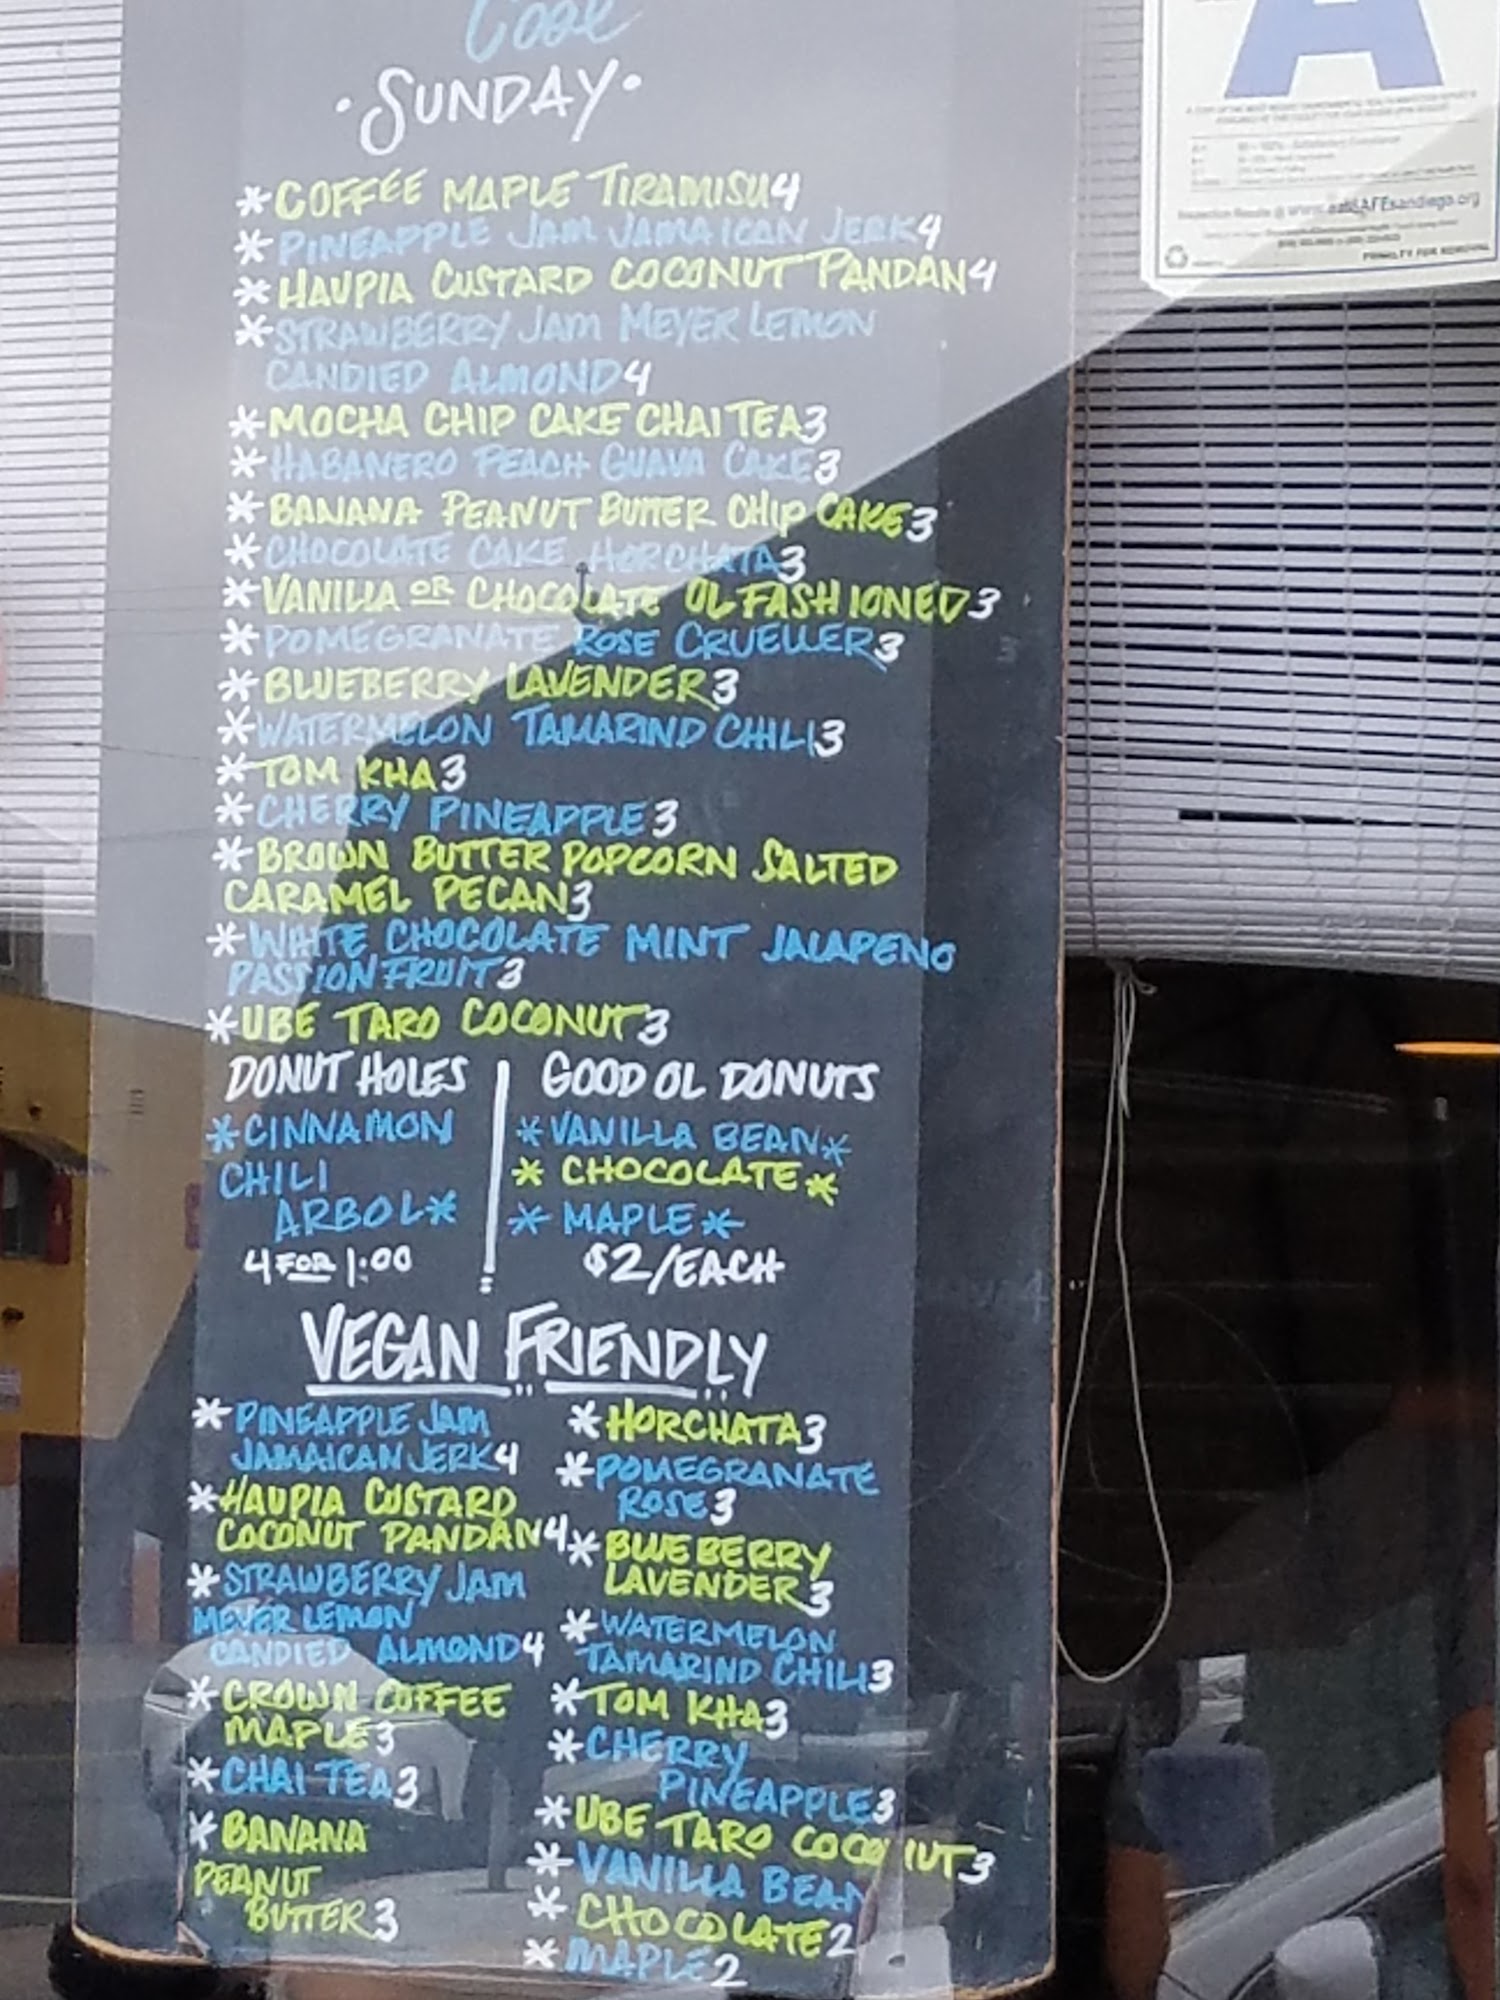 Cool
SUNDAY
*COFFEE MAPLE TIRAMISU 4
*PINEAPPLE JAM JAMAICAN JERK 4
*HAUPIA CUSTARD COCONUT PANDAN 4
*STRAWBERRY JAM MEYER LEMON
CANDIED ALMOND 4
*MOCHA CHIP CAKE CHAI TEA 3
*HABANERO PEACH GUAVA CAKE 3
*BANANA PEANUT BUTTER CHIP CAKE 3
*CHOCOLATE CAKE HORCHATA 3
*VANILLA OR CHOCOLATE OL FASHIONED 3
*POMEGRANATE ROSE CRUELLER 3
*BLUEBERRY LAVENDER 3
*WATERMELON TAMARIND CHILI 3
*TOM KHA 3
*CHERRY PINEAPPLE 3
*BROWN BUTTER POPCORN SALTED
CARAMEL PECAN 3
*WHITE CHOCOLATE MINT JALAPENO
PASSIONFRUIT 3
*UBE TARO COCONUT 3
DONUT HOLES
*CINNAMON
CHILI
ARBOL*
4 FOR 1:00
GOOD OL DONUTS
*VANILLA BEAN*
*CHOCOLATE*
*MAPLE*
$2/EACH
VEGAN FRIENDLY
*PINEAPPLE JAM
JAMAICAN JERK 4
*HAUPIA CUSTARD
COCONUT PANDAN 4
*STRAWBERRY JAM
MEYER LEMON
CANDIED ALMOND 4
*CROWN COFFEE
MAPLE 3
*CHAI TEA 3
*BANANA
PEANUT
BUTTER 3
*HORCHATA 3
*POMEGRANATE
ROSE 3
*BLUEBERRY
LAVENDER 3
*WATERMELON
TAMARIND CHILI 3
*TOM KHA 3
*CHERRY
PINEAPPLE 3
*UBE TARO COCONUT 3
*VANILLA BEAN
*CHOCOLATE 2
*MAPLE 2
A
PENALTY FOR REMOVAL